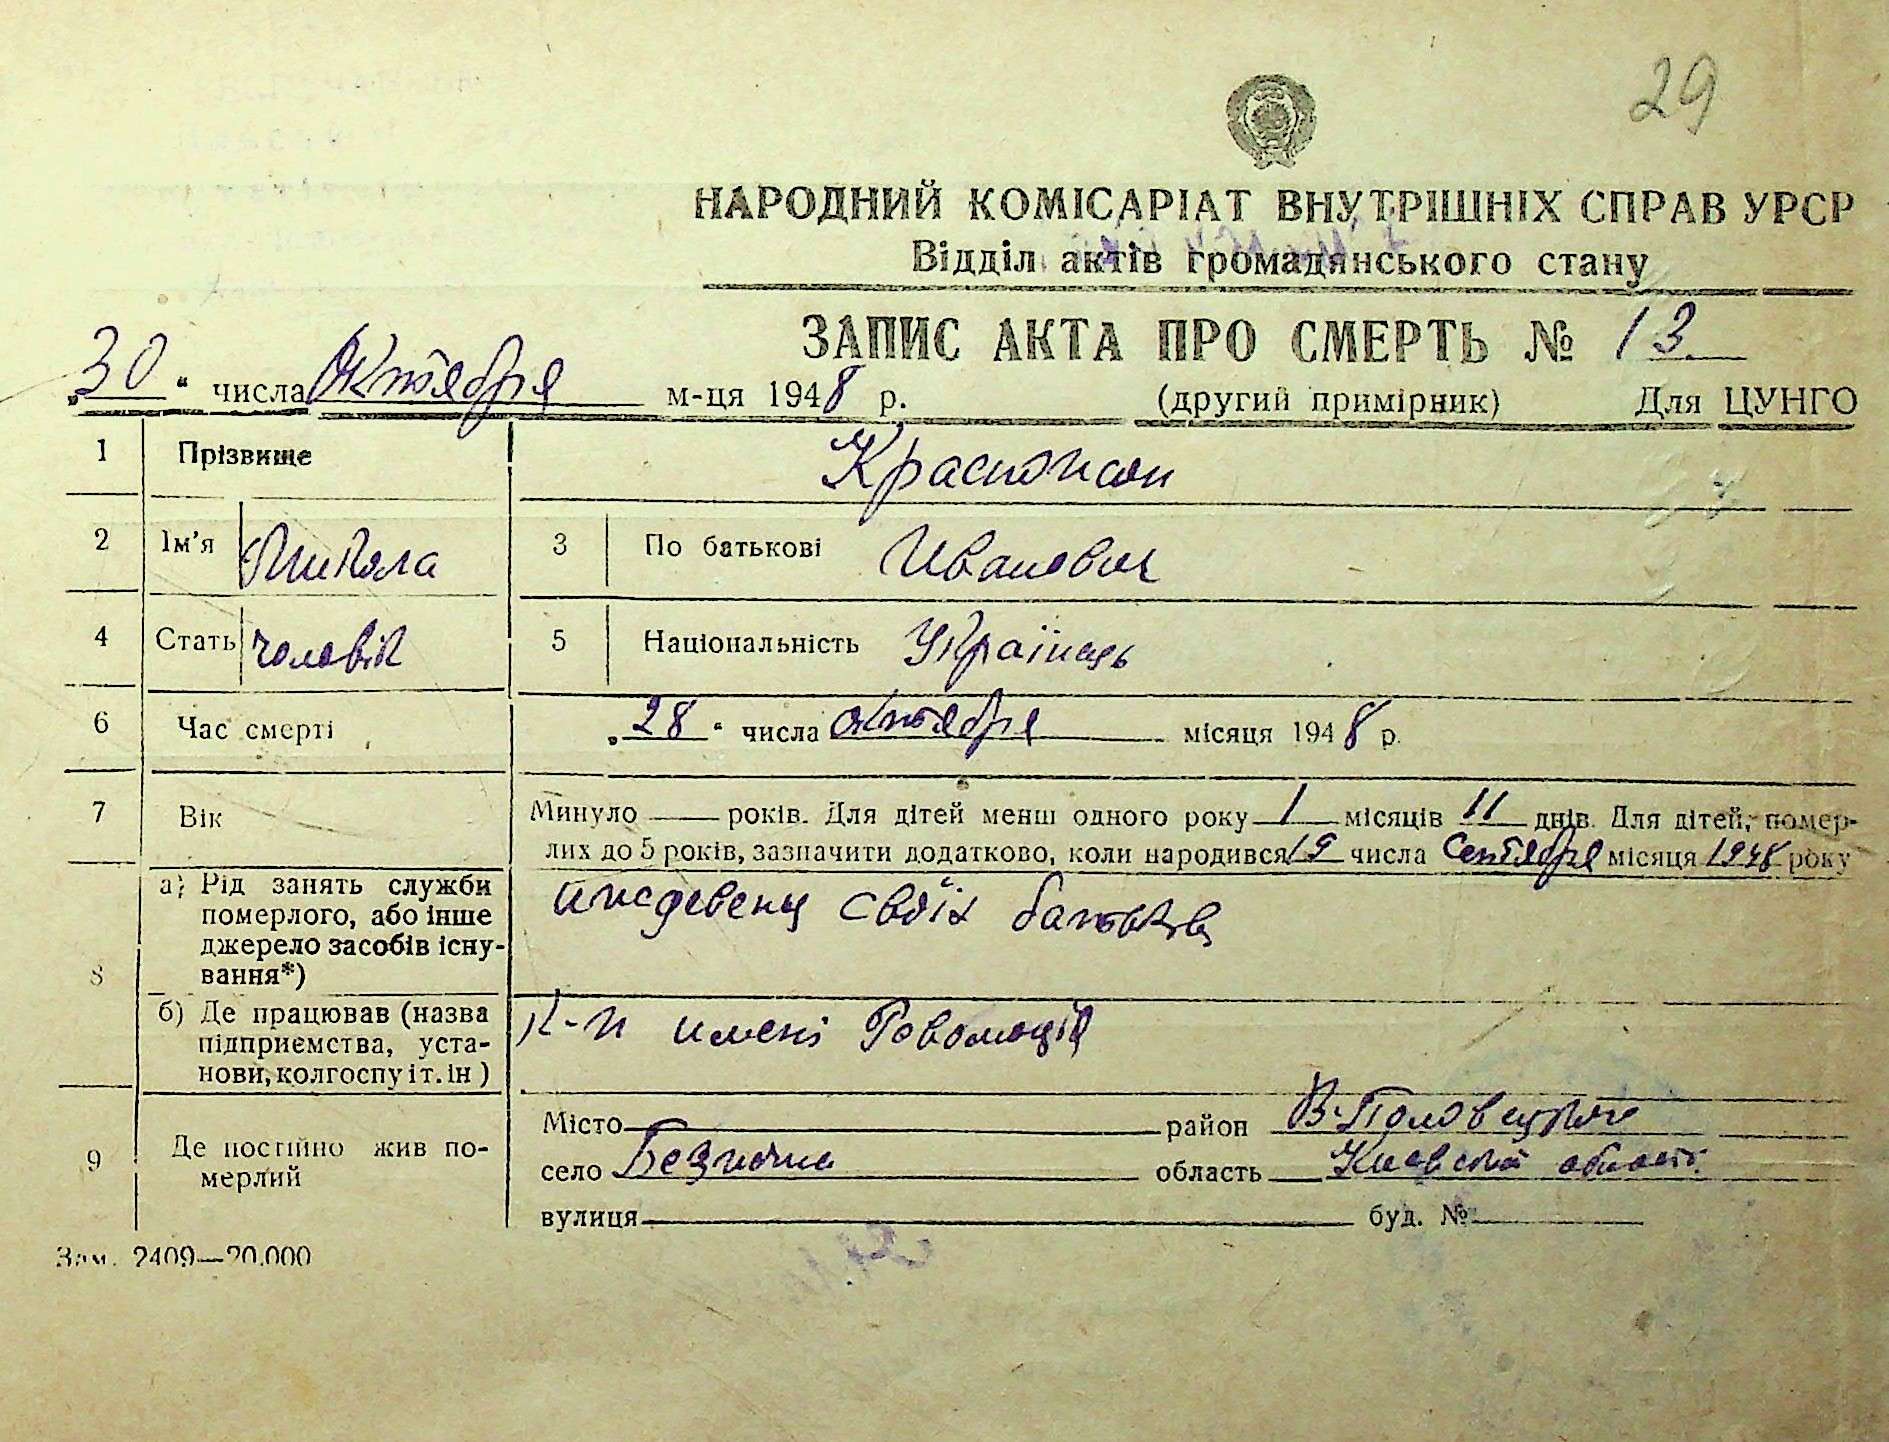 29
НАРОДНИЙ КОМІСАРІАТ ВНУТРІШНІХ СПРАВ УРСР
Відділ актів громадянського стану
ЗАПИС АКТА ПРО СМЕРТЬ № 13
„30" числа Октября м-ця 1948 р. (другий примірник) Для ЦУНГО
1 Прізвище
2 Ім'я Микола 3 По батькові Иванович
4 Стать чоловік 5 Національність Українець
6 Час смерті „28" числа октября місяця 1948 р.
7 Вік Минуло — років. Для дітей менш одного року 1 місяців 11 днів. Для дітей, помер-
лих до 5 років, зазначити додатково, коли народився 19 числа Сентября місяця 1948 року
8 а) Рід занять служби
померлого, або інше
джерело засобів існу-
вання*)
ижедевенц своїх батьків
б) Де працював (назва
підприємства, уста-
нови, колгоспу і т. ін)
К-п имені
9 Де постійно жив по-
мерлий
Місто — район В-Половецкого
село Безпечна область Киевской области
вулиця — буд. №
Зам. 2409—20.000